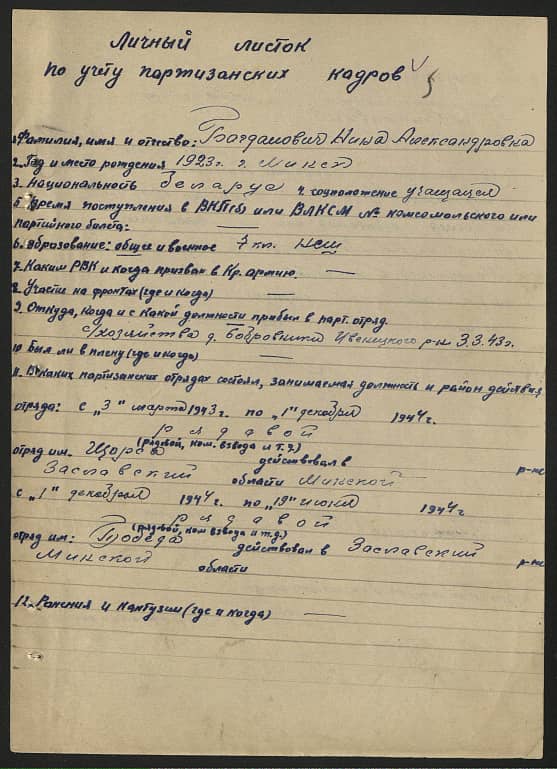 Личный листок
по учёту партизанских кадров
1. Фамилия, имя и отчество: Богданович Нина Александровна
2. Год и место рождения 1923 г. г. Минск
3. Национальность Беларус 4. соцположение учащаяся
5. Время поступления в ВКП(б) или ВЛКСМ № комсомольского или
партийного билета: —
6. Образование: общее и военное 7 кл. НСШ
7. Каким РВК и когда призван в Кр. армию. —
8. Участие на фронтах (где и когда) —
9. Откуда, когда и с какой должности прибыл в парт. отряд.
с/хозяйства д. Бобровники Ивенецкого р-на 3.3.43 г.
10. Был ли в плену (где и когда) —
11. В каких партизанских отрядах состоял, занимаемая должность и район действия
отряда: с „3" марта 1943 г. по „1" декабря 1944 г.
рядовой
(рядовой, ком. взвода и т.д.)
отряд им. Щорса действовал в
Заславский р-не
области Минской
с „1" декабря 1944 г. по „19" июня 1944 г
рядовой
(рядовой, ком взвода и т.д.)
отряд им: Победа действовал в Заславский р-не
Минской области
12. Ранения и контузии (где и когда) —